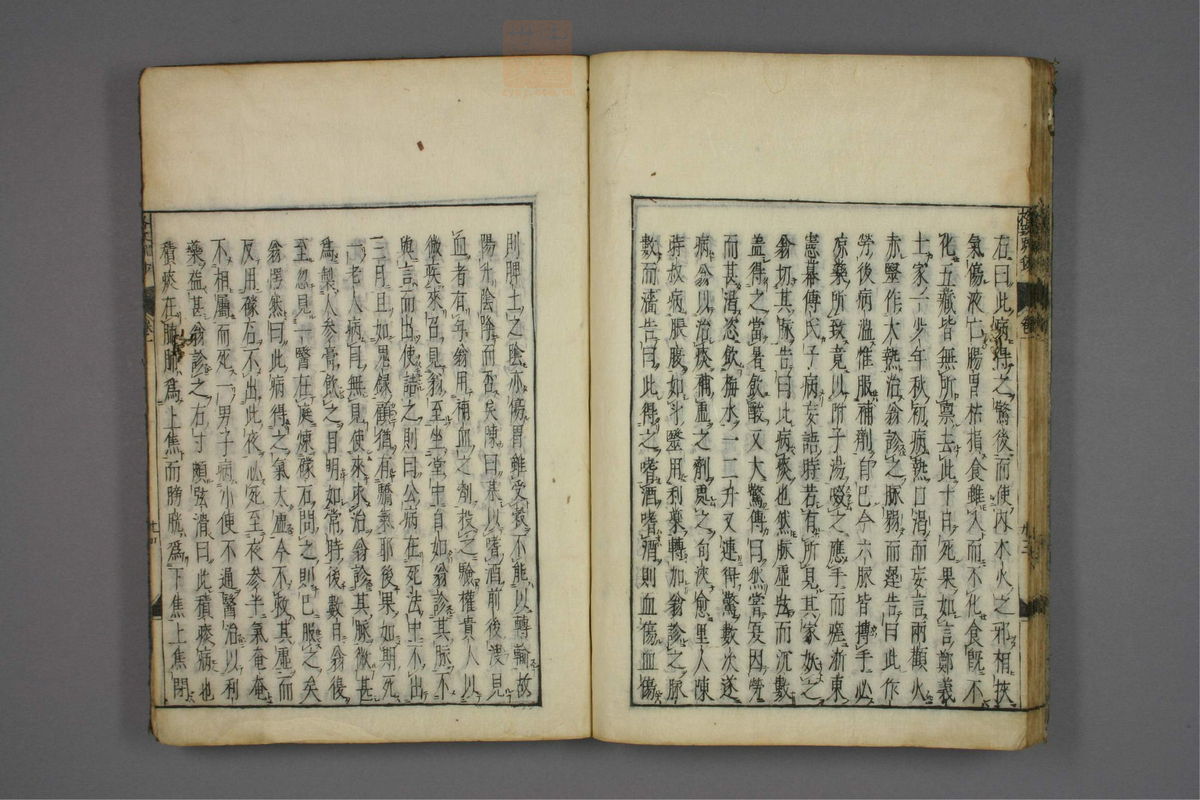 左曰此病得之驚後而使內木火之邪相挾
氣傷液亡腸胃枯損食雖入而不化食既不
化五藏皆無所稟去此十日死果如言鄭義
士家一少年秋初病熱口渴而妄言兩顴火
赤醫作大熱治翁診之脈弱而遲告曰此作
勞後病溫惟服補劑自已今六脈皆搏手必
凉藥所致竟以附子湯啜之應手而瘥浙東
憲幕傅氏子病妄語時若有所見其家妖之
翁切其脈告曰此病痰也然脈虛弦而沉數
蓋得之當暑飲酸又大驚傅曰然嘗夏因勞
而甚渴恣飲梅水一二升又連得驚數次遂
病翁以治痰補虛之劑處之旬浹愈里人陳
時叔病脹腹如斗醫用利藥轉加翁診之脈
數而濇告曰此得之嗜酒嗜酒則血傷血傷
則脾土之陰亦傷胃雖受穀不能以轉輸故
陽升陰降而否矣陳曰某以嗜酒前後溲見
血者有年翁用補血之劑投之驗權貴人以
微疾來召見翁至坐堂中自如翁診其脈不
與言而出使詰之則曰公病在死法中不出
三月且如鬼錄顧猶有驕氣耶後果如期死
一老人病目無見使來求治翁診其脈微甚
為製人參膏飲之目明如常時後數日翁復
至忽見一醫在庭煉礞石問之則已服之矣
翁愕然曰此病得之氣太虛今不救其虛而
反用礞石不出此夜必死至夜參半氣奄奄
不相屬而死一男子病小便不通醫治以利
藥益甚翁診之右寸頗弦滑曰此積痰病也
積痰在肺肺為上焦而膀胱為下焦上焦閉